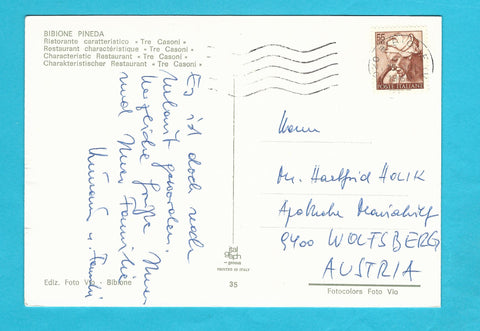 BIBIONE PINEDA
Ristorante caratteristico « Tre Casoni »
Restaurant charactéristique « Tre Casoni »
Characteristic Restaurant « Tre Casoni »
Charakteristischer Restaurant « Tre Casoni »
Es ist doch noch
Urlaub geworden.
Herzliche Grüße Ihnen
und Ihrer Familie
u. Familie
Ediz. Foto Vio - Bibione
ital
graph
genova
PRINTED IN ITALY
35
55
POSTE ITALIANE
Herrn
Mr. Hartfrid HOLIK
Apotheke Mariahilf
9400 WOLFSBERG
AUSTRIA
Fotocolors Foto Vio